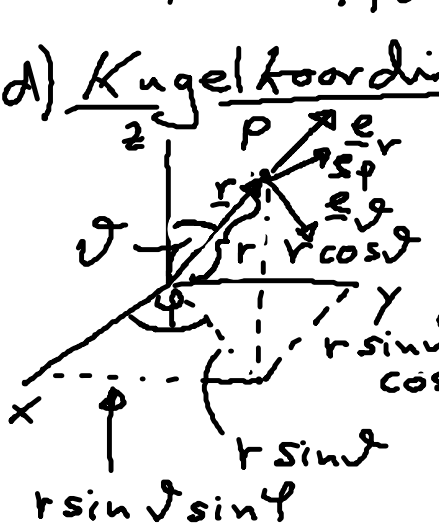 d) Kugelkoordi
z P e_r
r
ϑ r e_ϑ
r cosϑ
φ y
r sinϑ
cos
x
r sinϑ
r sinϑ sinφ